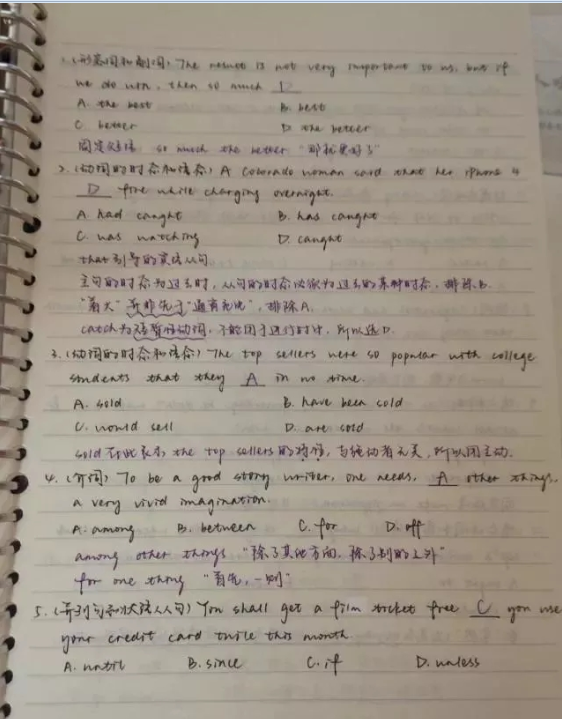 1.(形容词和副词) The result is not very important to us, but if
we do win, then so much D
A. the best B. best
C. better D. the better
固定短语 so much the better "那就更好了"
2.(动词的时态和语态) A Colorado woman said that her iphone 4
D fire while charging overnight.
A. had caught B. has caught
C. was watching D. caught
that引导的宾语从句
主句的时态为过去时, 从句的时态必须为过去的某种时态, 排除B.
"着火" 并非先于 "通宵充电", 排除A.
catch为短暂性动词, 不能用于进行时中, 所以选D.
3.(动词的时态和语态) The top sellers were so popular with college
students that they A in no time.
A. sold B. have been sold
C. would sell D. are sold
sold在此表示 the top sellers的特征, 与施动者无关, 所以用主动.
4.(介词) To be a good story writer, one needs, A other things,
a very vivid imagination.
A. among B. between C. for D. off
among other things "除了其他方面, 除了别的之外"
for one thing "首先, 一则"
5.(并列句和状语从句) You shall get a film ticket free C you use
your credit card twice this month.
A. until B. since C. if D. unless